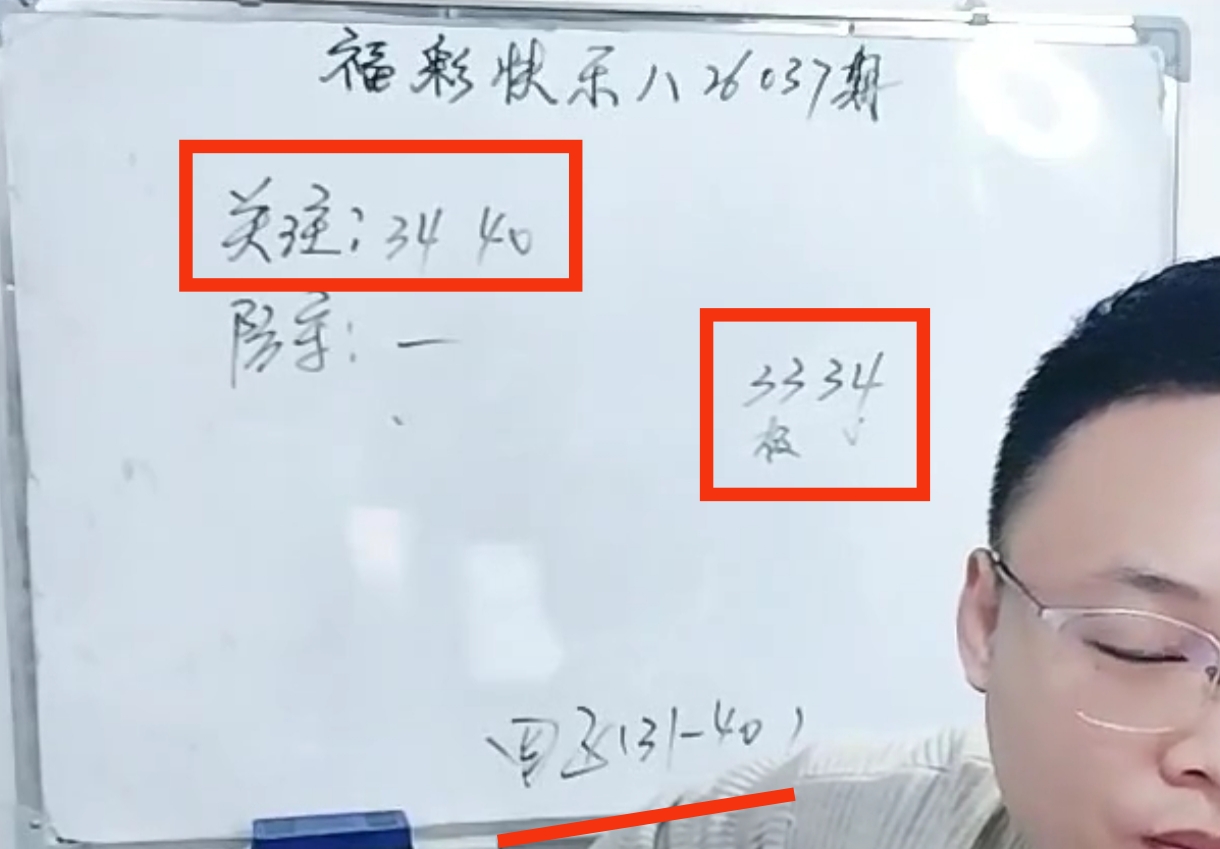 福彩快乐八26037期
关注:34 40
防守:一
33 34
四区(31-40)